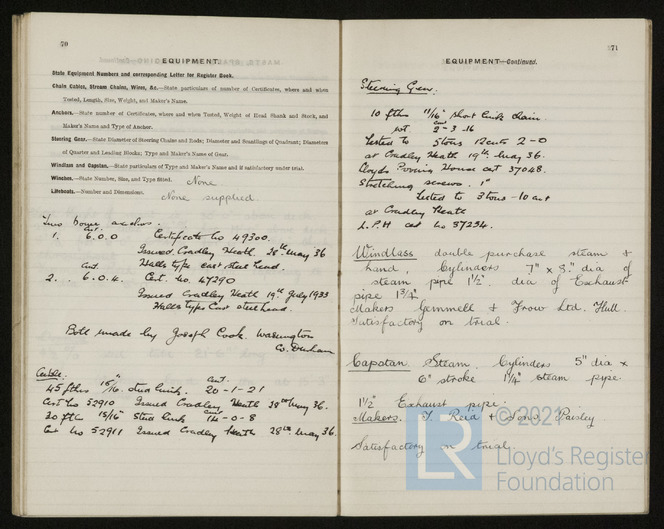 70
EQUIPMENT.
State Equipment Numbers and corresponding Letter for Register Book.
Chain Cables, Stream Chains, Wires, &c.—State particulars of number of Certificates, where and when
Tested, Length, Size, Weight, and Maker's Name.
Anchors.—State number of Certificates, where and when Tested, Weight of Head Shank and Stock, and
Maker's Name and Type of Anchor.
Steering Gear.—State Diameter of Steering Chains and Rods; Diameter and Scantlings of Quadrant; Diameters
of Quarter and Leading Blocks; Type and Maker's Name of Gear.
Windlass and Capstan.—State particulars of Type and Maker's Name and if satisfactory under trial.
Winches.—State Number, Size, and Type fitted. None
Lifeboats.—Number and Dimensions. None supplied
Two bower anchors.
Cwt.
1. 6.0.0 Certificate No 49300.
Issued Cradley Heath 28th May 36
Halls type cast steel head.
Cwt.
2. 6.0.4. Cert. No. 47290
Issued Cradley Heath 19th July 1933
Halls type Cast steel head.
Both made by Joseph Cook. Washington
Co. Durham
Cable.
Cwt.
45 fths 15/16" stud link. 20-1-21
Cert No 52910 Issued Cradley Heath 28th May 36.
30 fths 15/16" Stud link Cwt 14-0-8
Cert No 52911 Issued Cradley Heath 28th May 36.
71
EQUIPMENT—Continued.
Steering Gear.
10 fths 11/16" short link chain.
wt cwt 2-3.16
Tested to 5 tons 12 cwts 2-0
at Cradley Heath 19th May 36.
Lloyds Proving House cert 37048.
Stretching screws. 1"
Tested to 3 tons-10 cwt
at Cradley Heath
L.P.H cert No 37234.
Windlass double purchase steam +
hand, Cylinders 7" x 8" dia of
steam pipe 1½". dia of Exhaust
pipe 1¾"
Makers Gemmell & Frow Ltd. Hull.
Satisfactory on trial.
Capstan. Steam. Cylinders 5" dia x
6" stroke 1¼" steam pipe.
1½" Exhaust pipe.
Makers. T. Reid + Sons Paisley
Satisfactory on trial.
© 2021
LR
Lloyd's Register
Foundation